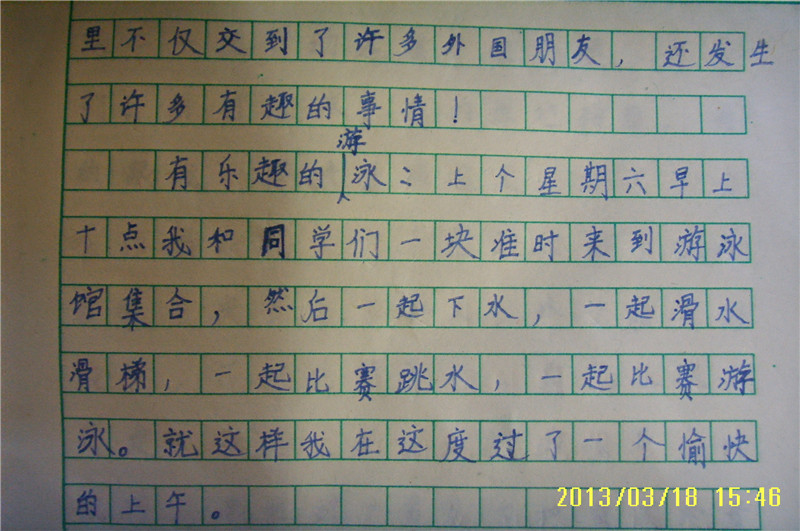 里不仅交到了许多外国朋友，还发生
了许多有趣的事情！
有乐趣的游泳：上个星期六早上
十点我和同学们一块准时来到游泳
馆集合，然后一起下水，一起滑水
滑梯，一起比赛跳水，一起比赛游
泳。就这样我在这度过了一个愉快
的上午。
2013/03/18 15:46